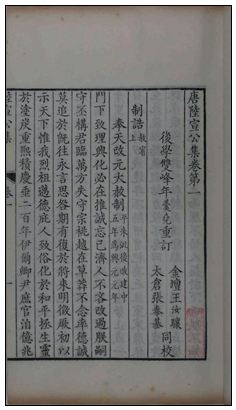 唐陸宣公集卷第一
後學雙峰年羹堯重訂
金壇王汝驤
太倉張泰基 同校
制誥 赦宥上
奉天改元大赦制 平朱泚後改建中五年爲興元元年
門下致理興化必在推誠忘己濟人不吝改過朕嗣
守丕構君臨萬方失守宗祧越在草莽不念率德誠
莫追於旣往永言思咎期有復於將來明徵厥初以
示天下惟我烈祖邁德庇人致俗化於和平拯生靈
於塗炭重熙積慶垂二百年伊爾卿尹庶官洎億兆
陸宣公集 卷一